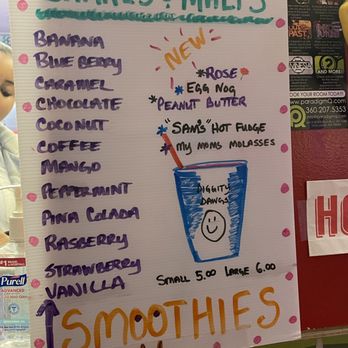 SHAKES & MALTS
BANANA
BLUEBERRY
CARAMEL
CHOCOLATE
COCONUT
COFFEE
MANGO
PEPPERMINT
PINA COLADA
RASBERRY
STRAWBERRY
VANILLA
NEW
*ROSE
*EGG NOG
*PEANUT BUTTER
*"SAM'S" HOT FUDGE
*MY MOMS MOLASSES
DIGGITY
DAWGS
SMALL 5.00 LARGE 6.00
SMOOTHIES
Purell
ADVANCED
PAST
& MORE
BOOK YOUR ROOM TODAY!
www.paradigmQ.com
360 207.5353
HO